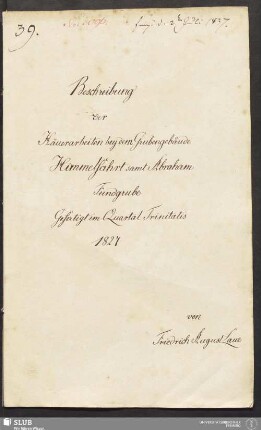 39.
1827.
Beschreibung
der
Häuerarbeiten bey dem Grubengebäude
Himmelfahrt samt Abraham
Fundgrube
Gefertigt im Quartal Trinitatis
1827
von
Friedrich August Laue
SLUB
Wir führen Wissen.